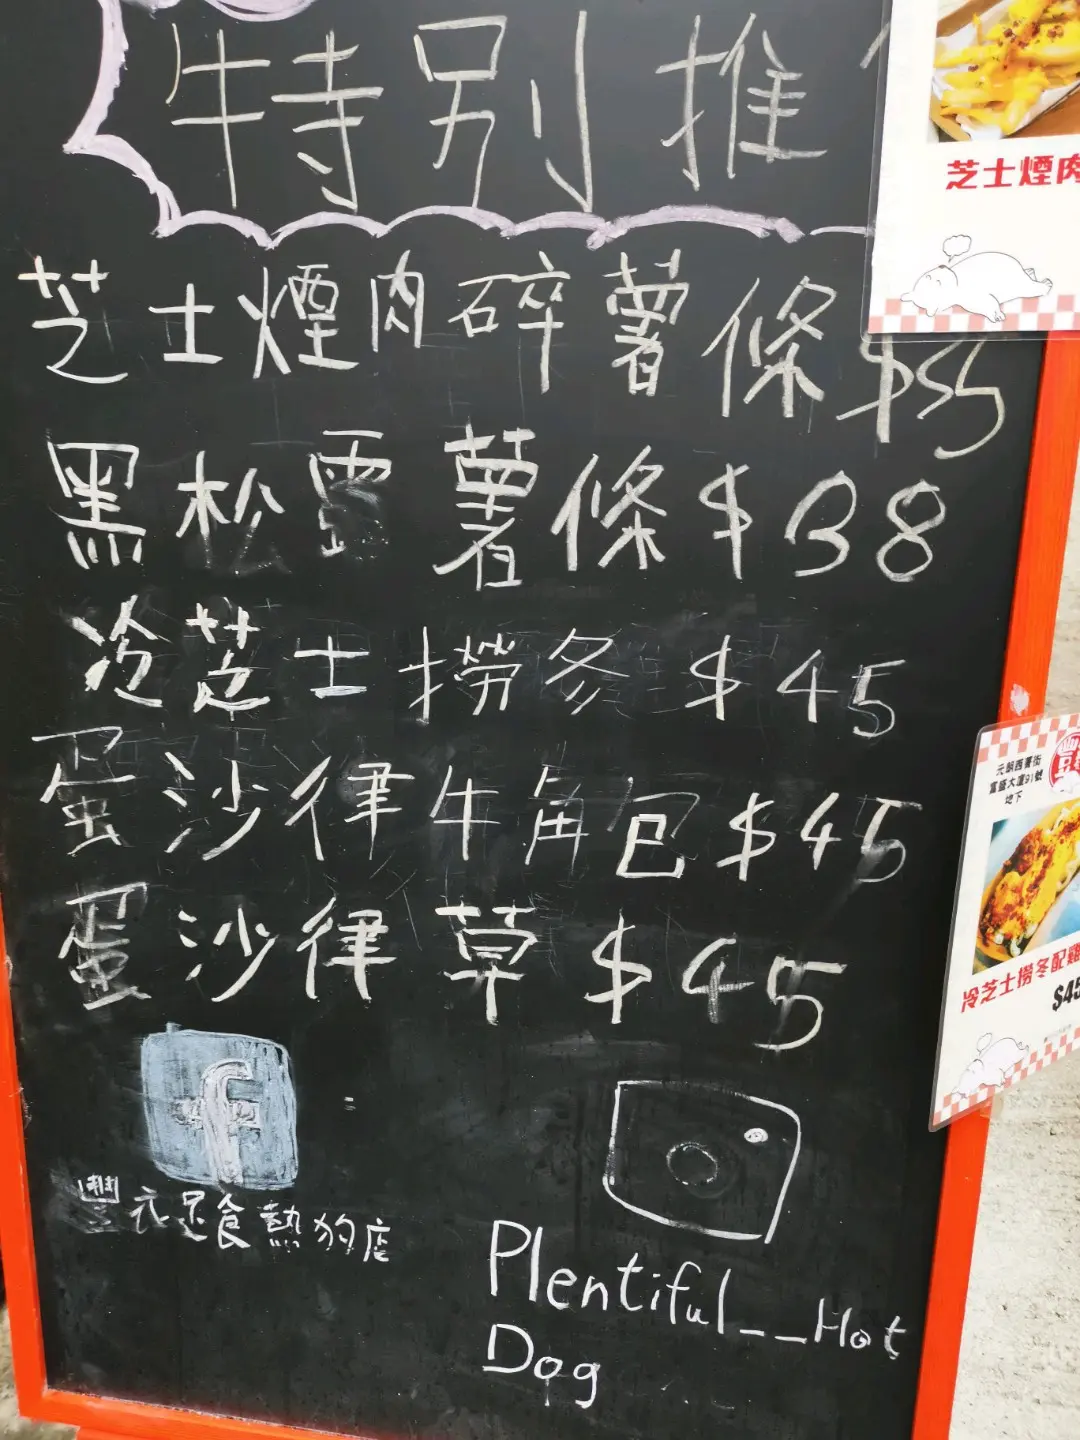 特別推
芝士煙肉
芝士煙肉碎薯條 $35
黑松露薯條 $38
冷芝士撈冬 $45
蛋沙律牛角包 $45
蛋沙律草 $45
元朗西菁街
富盛大廈91號
地下
冷芝士撈冬配雞
$45
f
豐衣足食熱狗店
Plentiful__Hot
Dog